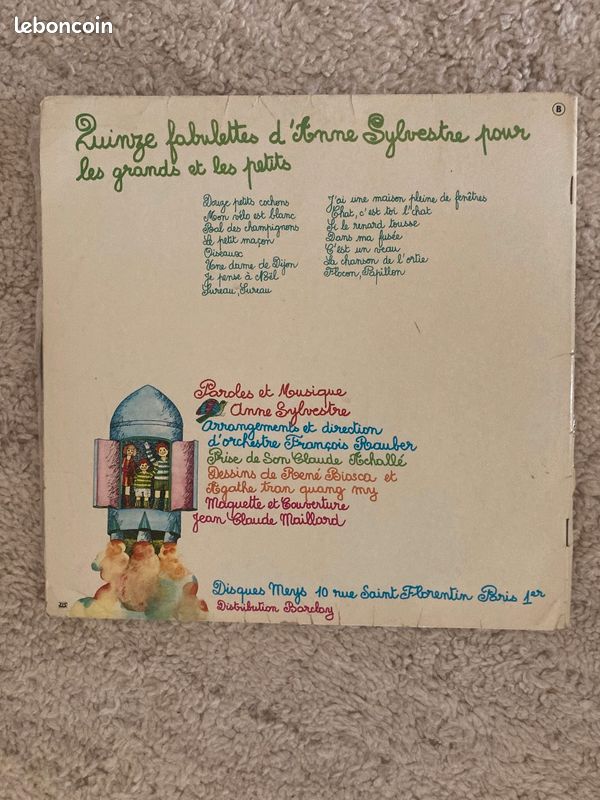 leboncoin
B
Quinze fabulettes d'Anne Sylvestre pour
les grands et les petits
Douze petits cochons
Mon vélo est blanc
Bal des champignons
Le petit maçon
Oiseaux
Une dame de Dijon
Je pense à Noël
Sureau, Sureau
J'ai une maison pleine de fenêtres
Chat, c'est toi l'chat
Si le renard tousse
Dans ma fusée
C'est un veau
La chanson de l'ortie
Flocon, Papillon
Paroles et Musique
Anne Sylvestre
Arrangements et direction
d'orchestre François Rauber
Prise de Son Claude Achallé
Dessins de René Biosca et
Agathe tran quang my
Maquette et Couverture
Jean Claude Maillard
Disques Meys 10 rue Saint Florentin Paris 1er
Distribution Barclay